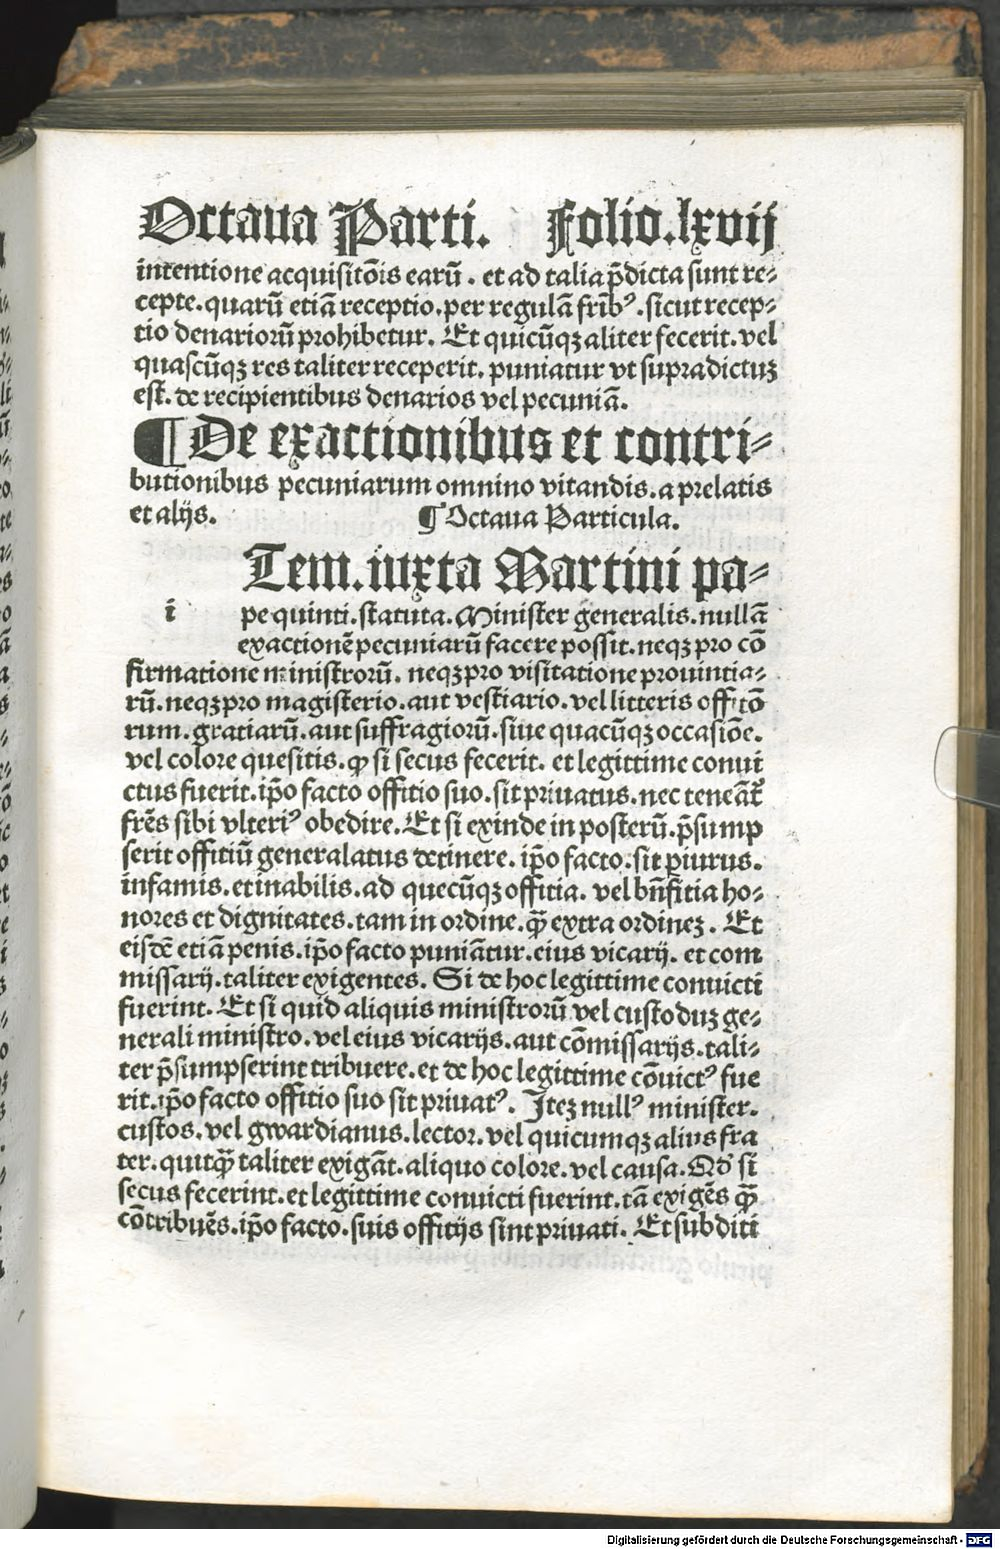 Octaua Parti. Folio.lxvij
intentione acquisitōis earū. et ad talia p̄dicta sunt re⸗
cepte.quarū etiā receptio.per regulā frīb⁹.sicut recep⸗
tio denariorū prohibetur. Et quicūqꝫ aliter fecerit.vel
quascūqꝫ res taliter receperit. puniatur vt supradictuꝫ
est. de recipientibus denarios vel pecuniā.
¶ De exactionibus et contri⸗
butionibus pecuniarum omnino vitandis.a prelatis
et alijs. ¶ Octaua Particula.
Tem.iuxta Martini pa⸗
i pe quinti.statuta.Minister generalis.nullā
exactionē pecuniarū facere possit.neqꝫ pro cō
firmatione ministrorū. neqꝫ pro visitatione prouintia⸗
rū.neqꝫ pro magisterio.aut vestiario.vel litteris offitō
rum.gratiarū.aut suffragiorū.siue quacūqꝫ occasiōe.
vel colore quesitis.ꝙ si secus fecerit. et legittime conui
ctus fuerit.ip̄o facto offitio suo.sit priuatus.nec teneāt᷑
fr̄es sibi vlteri⁹ obedire.Et si exinde in posterū.p̄sump
serit offitiū generalatus detinere. ip̄o facto.sit ꝑiurus.
infamis.et inabilis.ad quecūqꝫ offitia. vel bn̄fitia ho⸗
nores et dignitates.tam in ordine.ꝙ̄ extra ordineꝫ. Et
eisdē etiā penis.ip̄o facto puniātur.eius vicarij. et com
missarij.taliter exigentes. Si de hoc legittime conuicti
fuerint. Et si quid aliquis ministrorū vel custoduꝫ ge⸗
nerali ministro.vel eius vicarijs.aut cōmissarijs.tali⸗
ter p̄sumpserint tribuere.et de hoc legittime cōuict⁹ fue
rit.ip̄o facto offitio suo sit priuat⁹. Iteꝫ null⁹ minister.
custos.vel gwardianus.lector.vel quicumqꝫ alius fra
ter.quitꝙ̄ taliter exigāt.aliquo colore.vel causa.Qd̓ si
secus fecerint.et legittime conuicti fuerint.tā exigēs ꝙ̄
cōtribuēs.ip̄o facto.suis offitijs sint priuati. Et subditi
Digitalisierung gefördert durch die Deutsche Forschungsgemeinschaft - DFG